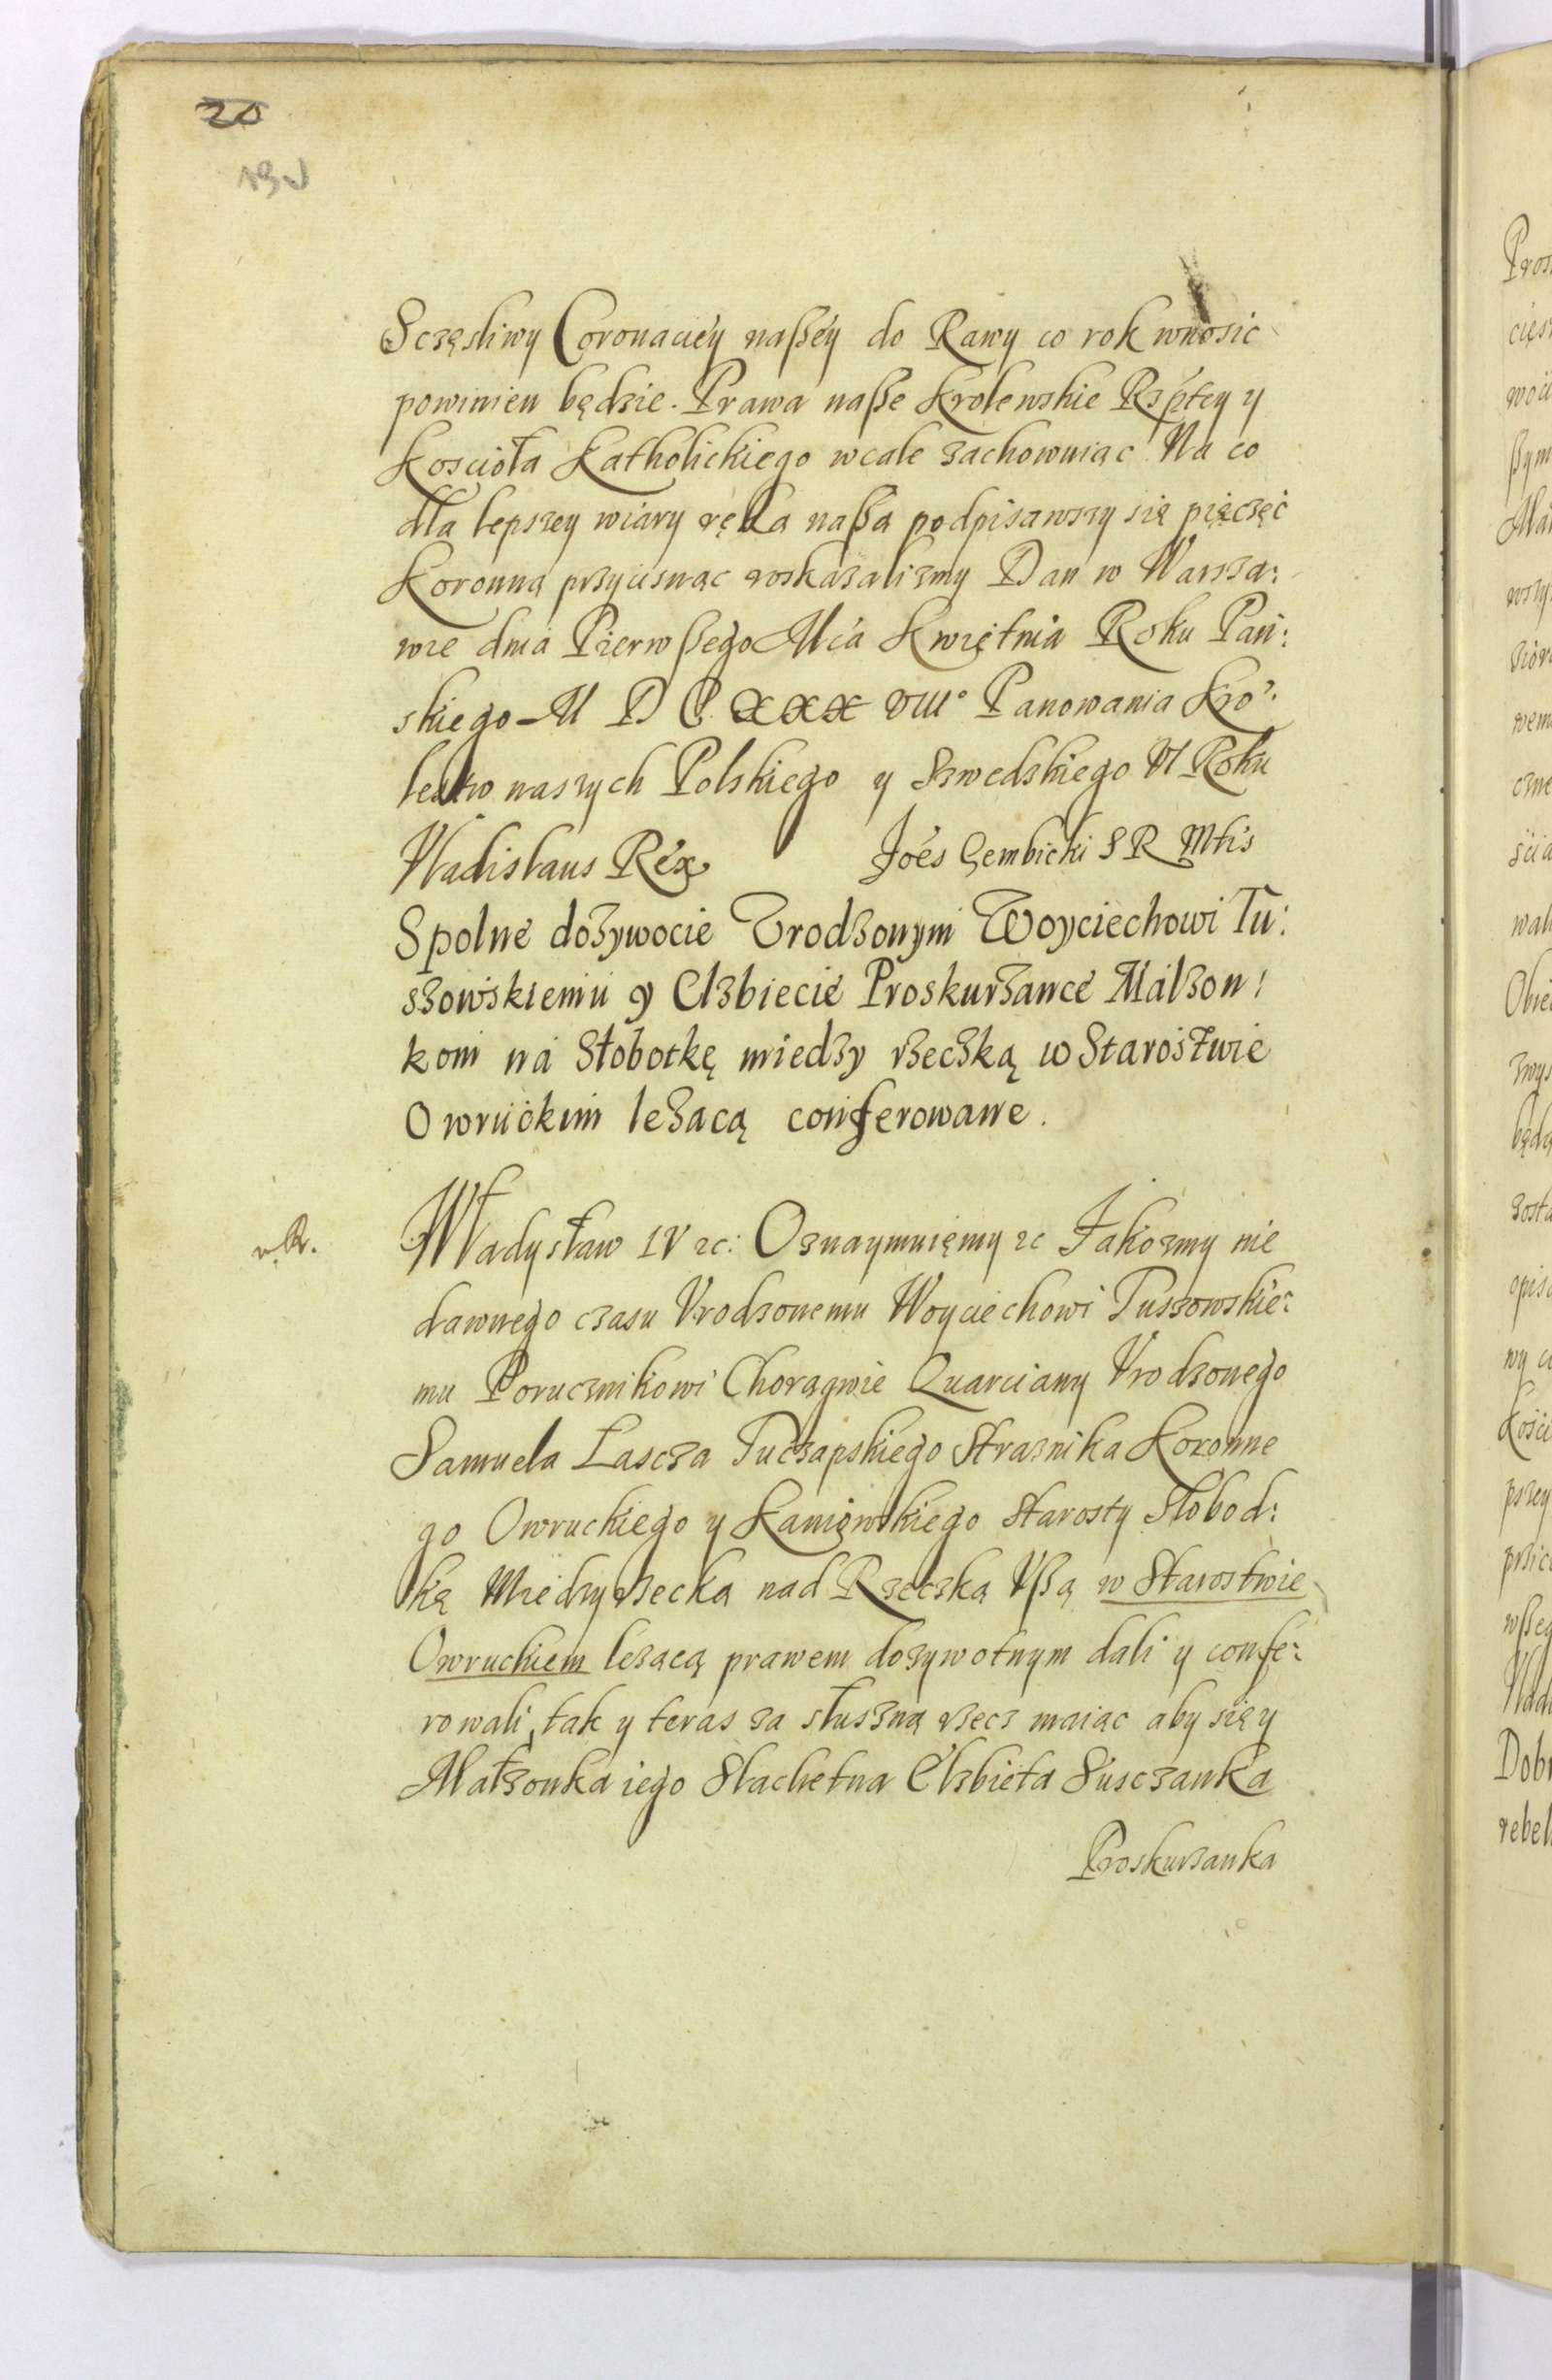 20
19v
Sczęsliwy Coronaciey naßey do Rawy co rok wnosic
powinien będzie. Prawa naße Krolewskie Rzptey y
Koscioła Katholickiego wcale zachowuiąc Na co
dla lepszey wiary ręka naßa podpisawszy się pięczęć
Koronną przycisnąc roskazalizmy Dan w Warsza:
wie dnia Pierwßego Mca Kwiętnia Roku Pań:
skiego M D C XXX VIII° Panowania Kro:
lestw naszych Polskiego y Szwedskiego VI Roku
Vladislaus Rex
Joes Gembicki S R Mtis
Spolne dozywocie Vrodzonym Woyciechowi Tu:
szowskiemu y Elzbiecie Proskurzance Małzon:
kom na Słobotkę miedzy rzeczką w Starostwie
Owruckim lezacą conferowane.
Władysław IV zc: Oznaymuięmy zc Jakozmy nie
dawnego czasu Vrodzonemu Woyciechowi Tuszowskie:
mu Porucznikowi Chorągwie Quarciany Vrodzonego
Samuela Łascza Tuczapskiego Straznika Koronne
go Owruckiego y Kaniowskiego Starosty Słobod:
ką Miedzyrzecka nad Rzeczką Vßą w Starostwie
Owruckiem lezącą prawem dozywotnym dali y confe:
rowali, tak y teras za słuszną rzecz maiąc aby się y
Małzonka iego Slachetna Elzbieta Susczanka
Proskurzanka